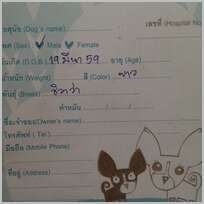 ชื่อสุนัข (Dog's name) เลขที่ (Hospital No
เพศ (Sex) ✓ Male Female
วันเกิด (D.O.B.) 19 มีนา 59 อายุ (Age)
น้ำหนัก (Weight) สี (Color) ขาว
พันธุ์ (Breed) ชิวาว่า
ทำหมัน
ชื่อเจ้าของ (Owner's name)
โทรศัพท์ (Tel.)
มือถือ (Mobile Phone)
ที่อยู่ (Address)